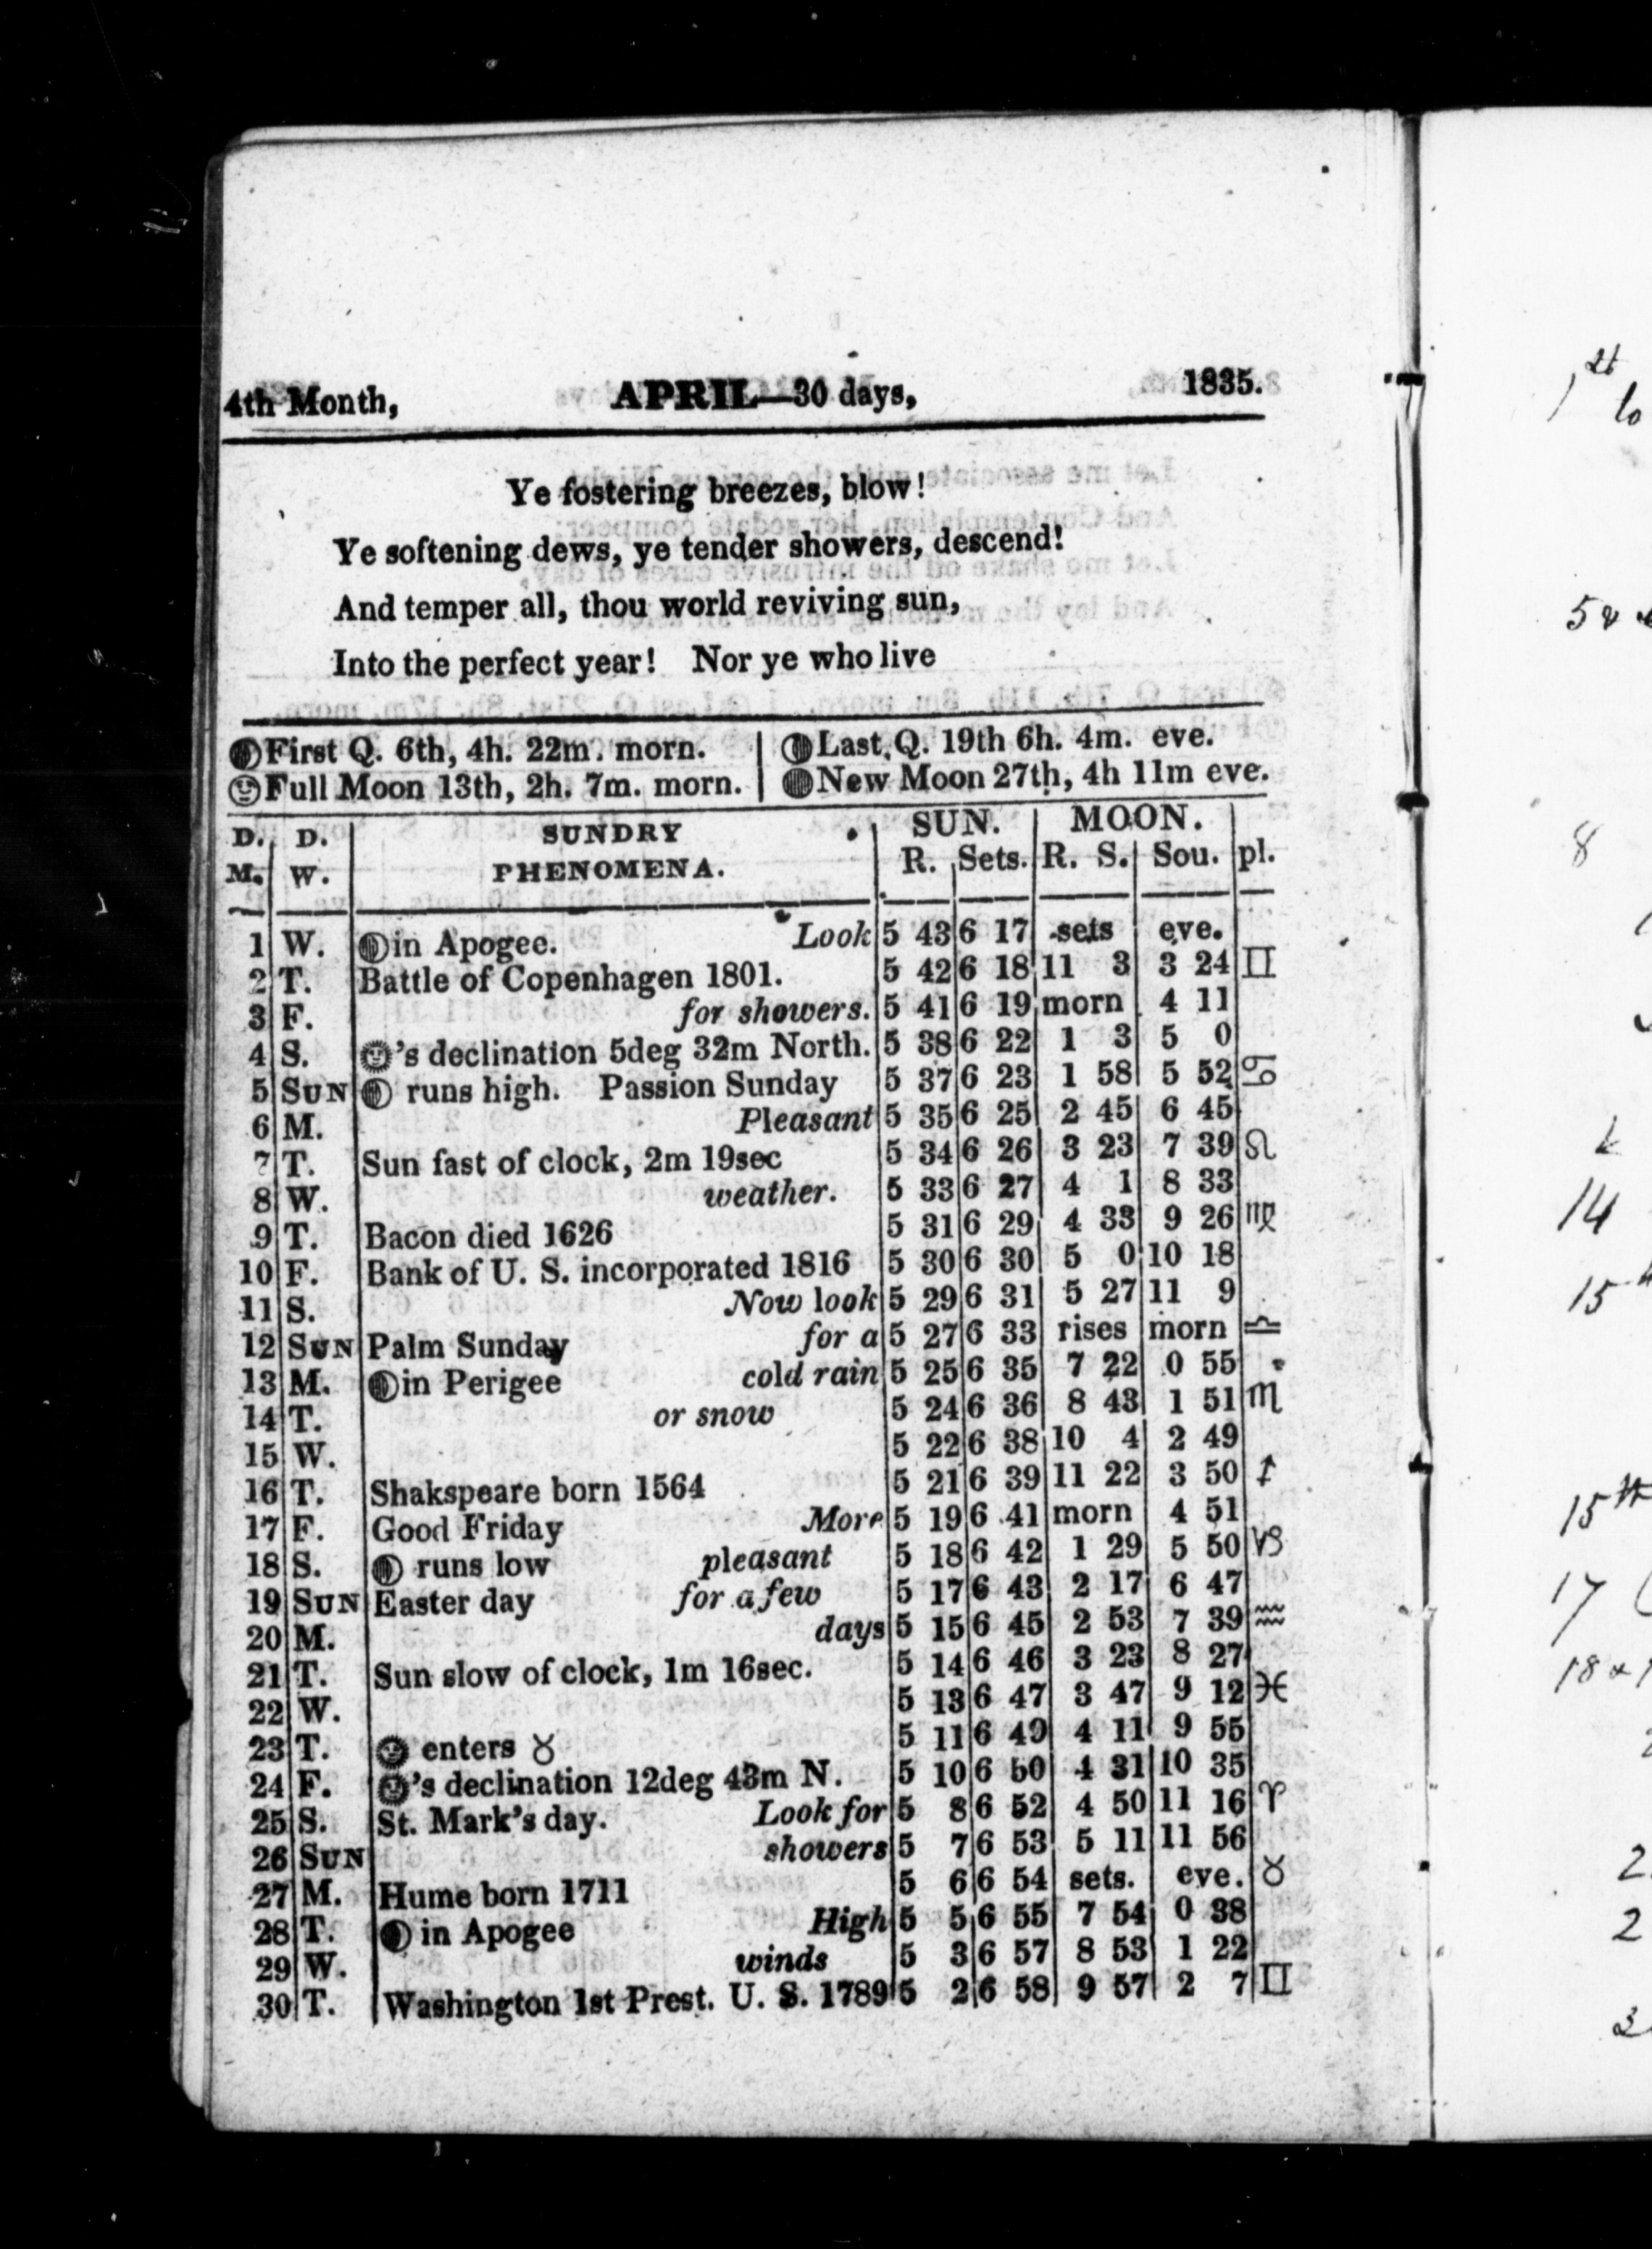 4th Month, APRIL—30 days, 1835.
Ye fostering breezes, blow!
Ye softening dews, ye tender showers, descend!
And temper all, thou world reviving sun,
Into the perfect year! Nor ye who live
First Q. 6th, 4h. 22m. morn. | Last Q. 19th 6h. 4m. eve.
Full Moon 13th, 2h. 7m. morn. | New Moon 27th, 4h 11m eve.
D. D. SUNDRY SUN. MOON.
M. W. PHENOMENA. R. Sets. R. S. Sou. pl.
1 W. in Apogee. Look 5 43 6 17 sets eve.
2 T. Battle of Copenhagen 1801. 5 42 6 18 11 3 3 24 ♊
3 F. for showers. 5 41 6 19 morn 4 11
4 S. 's declination 5deg 32m North. 5 38 6 22 1 3 5 0
5 SUN runs high. Passion Sunday 5 37 6 23 1 58 5 52 ♋
6 M. Pleasant 5 35 6 25 2 45 6 45
7 T. Sun fast of clock, 2m 19sec 5 34 6 26 3 23 7 39 ♌
8 W. weather. 5 33 6 27 4 1 8 33
9 T. Bacon died 1626 5 31 6 29 4 33 9 26 ♍
10 F. Bank of U. S. incorporated 1816 5 30 6 30 5 0 10 18
11 S. Now look 5 29 6 31 5 27 11 9
12 SUN Palm Sunday for a 5 27 6 33 rises morn ♎
13 M. in Perigee cold rain 5 25 6 35 7 22 0 55
14 T. or snow 5 24 6 36 8 43 1 51 ♏
15 W. 5 22 6 38 10 4 2 49
16 T. Shakspeare born 1564 5 21 6 39 11 22 3 50 ♐
17 F. Good Friday More 5 19 6 41 morn 4 51
18 S. runs low pleasant 5 18 6 42 1 29 5 50 ♑
19 SUN Easter day for a few 5 17 6 43 2 17 6 47
20 M. days 5 15 6 45 2 53 7 39 ♒
21 T. Sun slow of clock, 1m 16sec. 5 14 6 46 3 23 8 27
22 W. 5 13 6 47 3 47 9 12 ♓
23 T. enters ♉ 5 11 6 49 4 11 9 55
24 F. 's declination 12deg 43m N. 5 10 6 50 4 31 10 35
25 S. St. Mark's day. Look for 5 8 6 52 4 50 11 16 ♈
26 SUN showers 5 7 6 53 5 11 11 56
27 M. Hume born 1711 5 6 6 54 sets. eve. ♉
28 T. in Apogee High 5 5 6 55 7 54 0 38
29 W. winds 5 3 6 57 8 53 1 22
30 T. Washington 1st Prest. U. S. 1789 5 2 6 58 9 57 2 7 ♊
8
14
15th
17